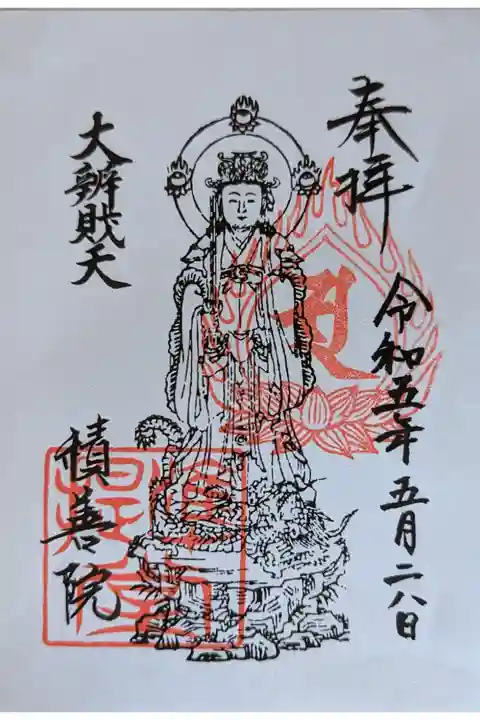 奉拝
令和五年五月二八日
大辨財天
積善院